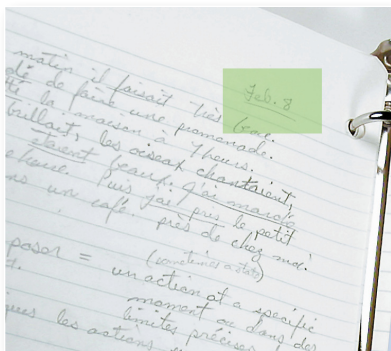 Feb. 8
matin il faisait très beau.
dé de faire une promenade.
la maison à 9 heures.
brillait, les oiseaux chantaient,
étaient beaux. J'ai marché
heure. Puis j'ai pris le petit
un café près de chez moi.
poser = (sometimes a state)
un action at a specific
moment ou dans des
limites précises
les actions